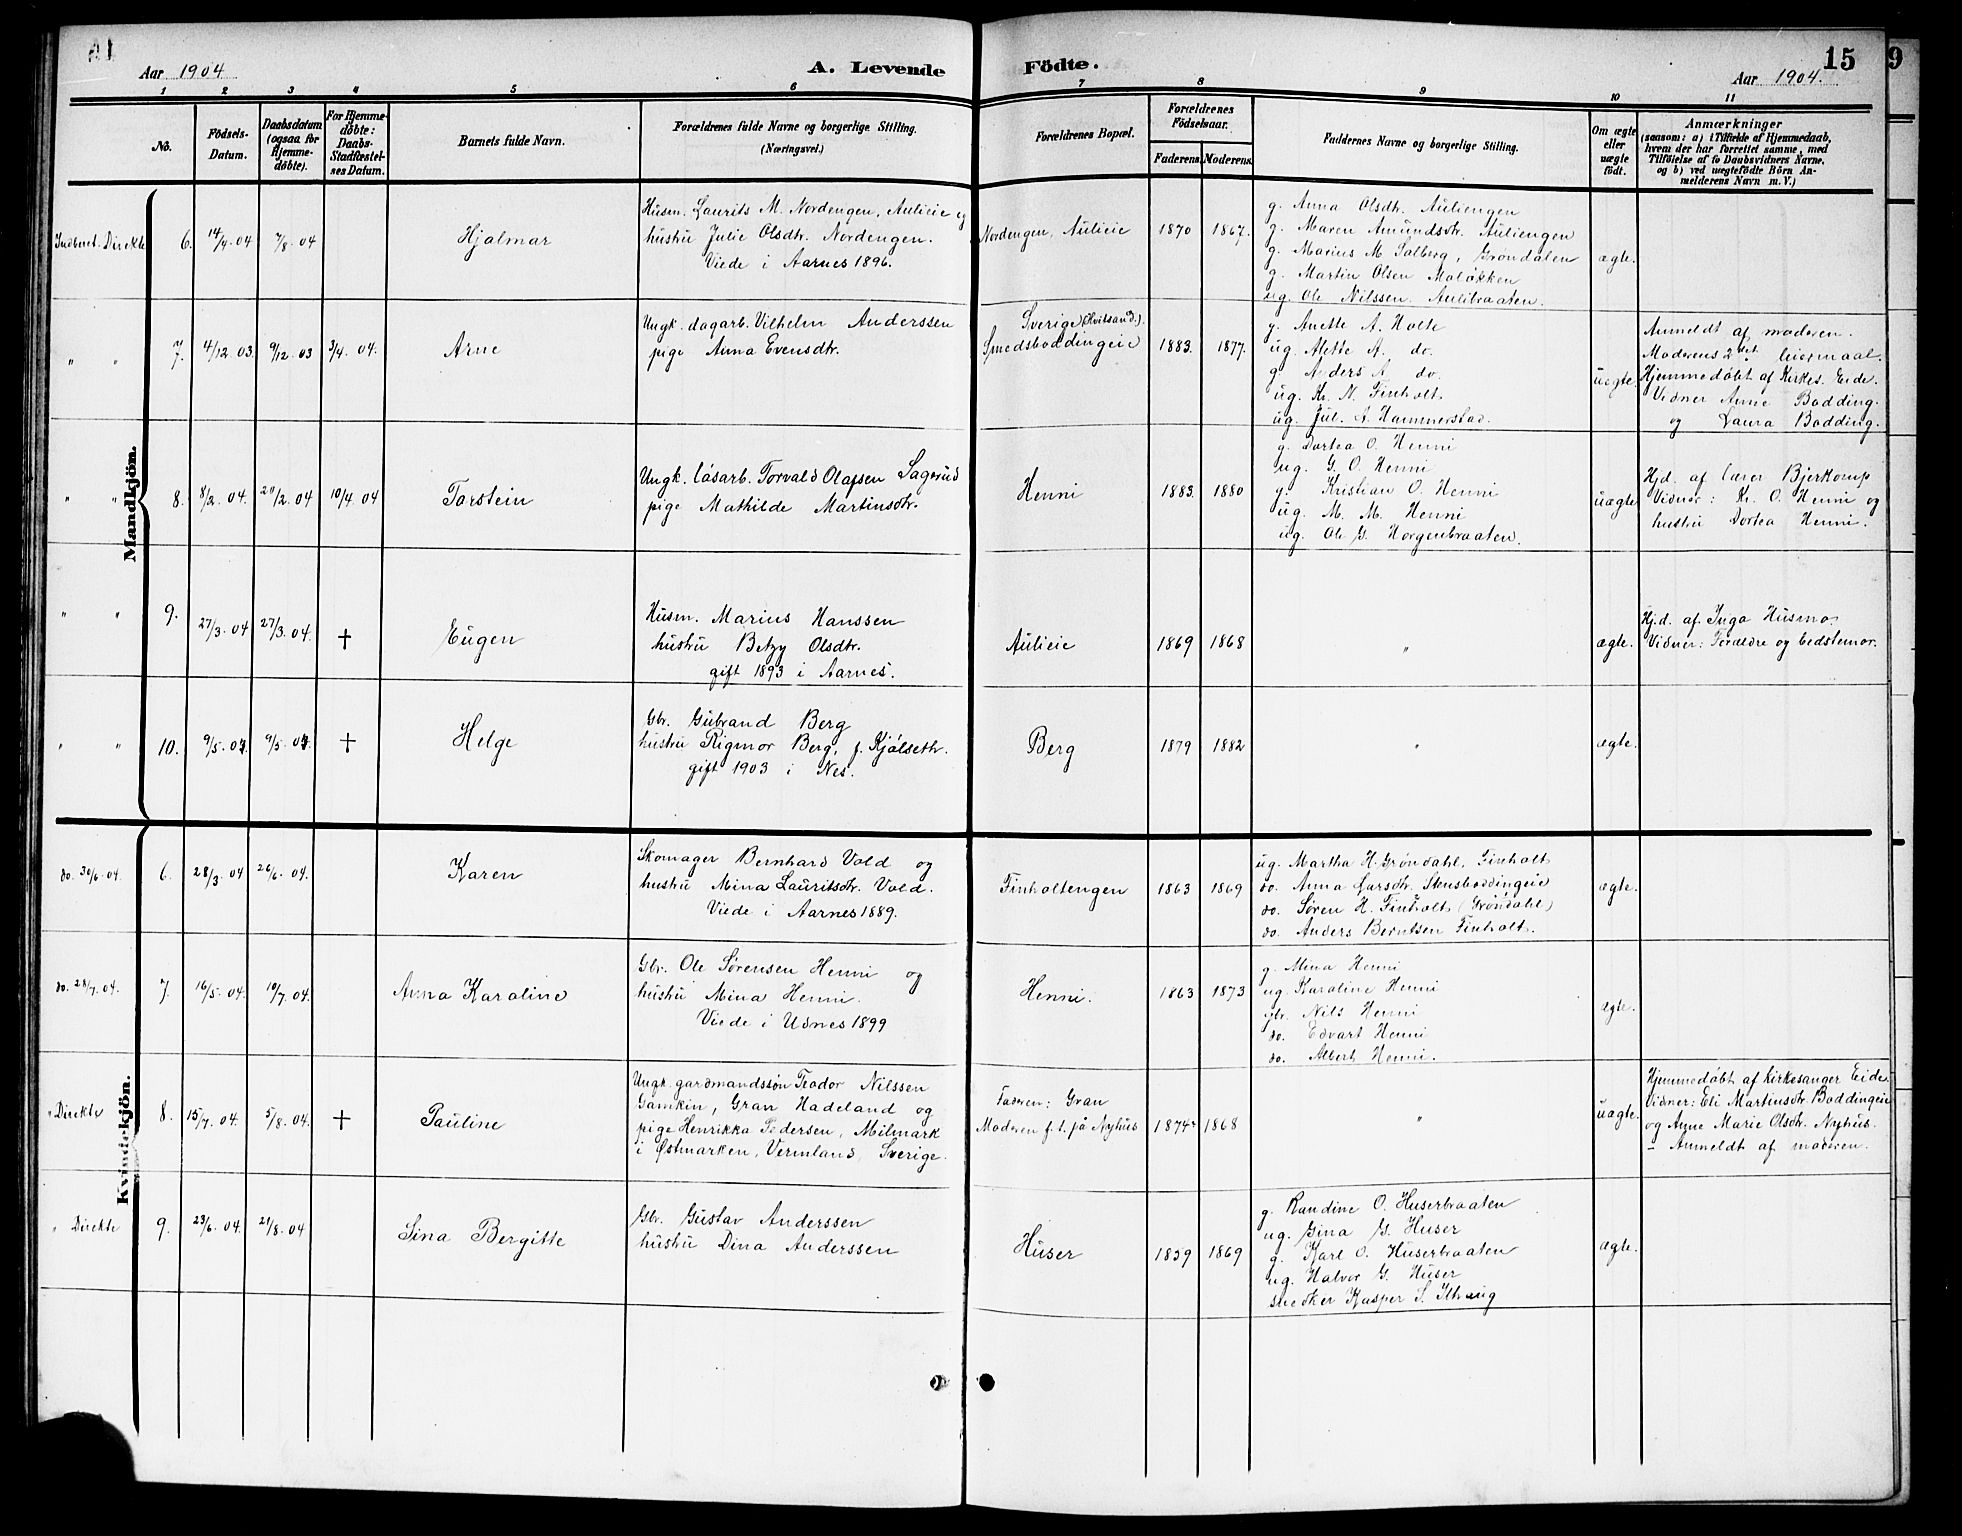 Aar 1904
A. Levende Födte.
15
9
Aar 1904.
1 2 3 4 5 6 7 8 9 10 11
No.
Födsels-Datum.
Daabsdatum (ogsaa for Hjemme-döbte).
For Hjemme-döbte: Daabs-Stadfæstel-ses Datum.
Barnets fulde Navn.
Forældrenes fulde Navne og borgerlige Stilling. (Næringsvei.)
Forældrenes Bopæl.
Forældrenes Födselsaar.
Faderens. Moderens.
Faddernes Navne og borgerlige Stilling.
Om ægte eller uægte födt.
Anmærkninger
(saasom: a) i Tilfælde af Hjemmedaab,
hvem der har forrettet samme, med
Tilföielse af to Daabsvidners Navne,
og b) ved uægtefödte Börn An-
melderens Navn m. V.)
Mandkjön.
Indbert. Direkte 6. 14/4 04 7/8 04
Hjalmar
Husm. Laurits M. Nordengen, Aulieie og
hustru Julie Olsdtr. Nordengen.
Viede i Aarnes 1896.
Nordengen, Aulieie
1870 1867.
g. Anna Olsdtr. Auliengen
g. Maren Amundsdtr. Auliengen
g. Marius M. Solberg, Grøndalen
g. Martin Olsen Moløkken
ug. Ole Nilssen Aulibraaten.
ægte.
" " 7. 4/12 03. 9/12 03 3/4 04.
Arne
Ungk. dagarb. Vilhelm Anderssen
pige Anna Evensdtr.
Sverige (Hvitsand).
Smedsboddingeie
1883. 1877.
g. Anette A. Holte
ug. Alette A. do.
g. Anders A do.
ug. Kr. N. Finholt.
ug. Jul. A. Hammerstad.
uægte.
Anmeldt af moderen.
Moderens 2det leiermaal.
Hjemmedøbt af Kirkes. Eide.
Vidner Anne Bodding.
og Laura Bodding.
" " 8. 8/2. 04. 21/2. 04 10/4. 04
Torstein
Ungk. løsarb. Torvald Olafsen Sagerud
pige Mathilde Martinsdtr.
Henni
1883. 1880
g. Dortea O. Henni
ug. G. O. Henni
g. Kristian O. Henni
ug. M. M. Henni
ug. Ole G. Horgenbraaten.
uægte
Hjd. af lærer Bjerkomp
Vidner: Kr. O. Henni og
hustru Dortea Henni.
" " 9. 27/3. 04 27/3. 04. †
Eugen
Husm. Marius Hanssen
hustru Betzy Olsdtr.
gift 1893 i Aarnes.
Aulieie
1869 1868
"
ægte.
Hj.d. af Inga Husmo.
Vidner: Forældre og bedstemor.
" " 10. 9/5. 04. 9/5. 04. †
Helge
Gbr. Gubrand Berg
hustru Rigmor Berg, f. Kjølseth.
gift 1903 i Nes.
Berg
1879 1882
"
ægte.
Kvindekjön.
do. 30/6. 04. 6. 28/3. 04 26/6. 04.
Karen
Skomager Bernhard Vold og
hustru Mina Lauritsdtr. Vold.
Viede i Aarnes 1889.
Finholtengen
1863 1869
ug. Martha H. Grøndahl, Finholt
do. Anna Larsdtr. Skusboddingeie
do. Søren H. Finholt (Grøndahl)
do. Anders Berntsen Finholt.
ægte.
do. 28/7. 04. 7. 16/5. 04. 10/7. 04.
Anna Karoline
Gbr. Ole Sørensen Henni og
hustru Mina Henni.
Viede i Udnes 1899
Henni.
1863 1873
g. Mina Henni
ug. Karoline Henni
gbr. Nils Henni
do. Edvart Henni
do. Albert Henni.
ægte.
" Direkte 8. 15/7. 04. 5/8. 04. †
Pauline
Ungk. gardmandssøn Teodor Nilssen
Gamkin, Gran Hadeland og
pige Henrikka Pedersen, Milmark
i Østmarken, Vermland, Sverige.
Faderen: Gran
Moderen f. t. på Nyhus
1874 1868
"
uægte.
Hjemmedøbt af Kirkesanger Eide.
Vidner: Eli Martinsdtr. Boddingeie
og Anne Marie Olsdtr. Nyhus.
- Anmeldt af moderen.
" Direkte 9. 23/6. 04. 21/8. 04
Sina Bergitte
Gbr. Gustav Anderssen
hustru Dina Anderssen
Huser
1859 1869
g. Randine O. Huserbraaten
ug. Gina G. Huser
g. Karl O. Huserbraaten
ug. Halvor G. Huser
snedker Kasper S.
ægte.